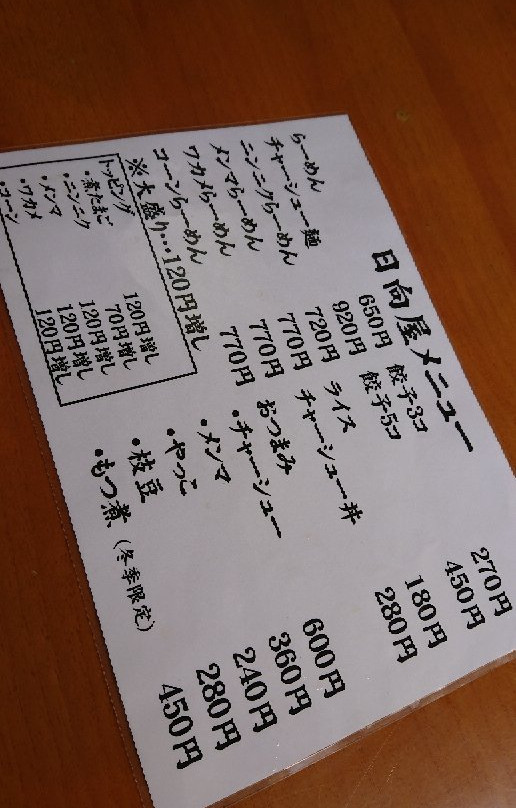 日向屋メニュー
らーめん 650円
チャーシュー麺 920円
ニンニクらーめん 720円
メンマらーめん 770円
ワカメらーめん 770円
コーンらーめん 770円
※大盛り…120円増し
トッピング
・煮たまご 120円増し
・ニンニク 70円増し
・メンマ 120円増し
・ワカメ 120円増し
・コーン 120円増し
餃子3コ 270円
餃子5コ 450円
ライス 180円
チャーシュー丼 280円
おつまみ
・チャーシュー 600円
・メンマ 360円
・やっこ 240円
・枝豆 280円
・もつ煮（冬季限定） 450円